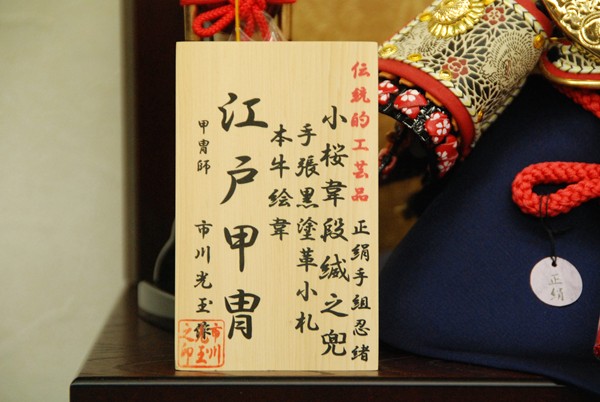 伝統的工芸品 正絹手組忍緒
小桜韋段縅之兜
手張黒塗革小札
本牛絵韋
江戸甲冑
甲冑師 市川光玉作
市川
光玉
之印
正絹